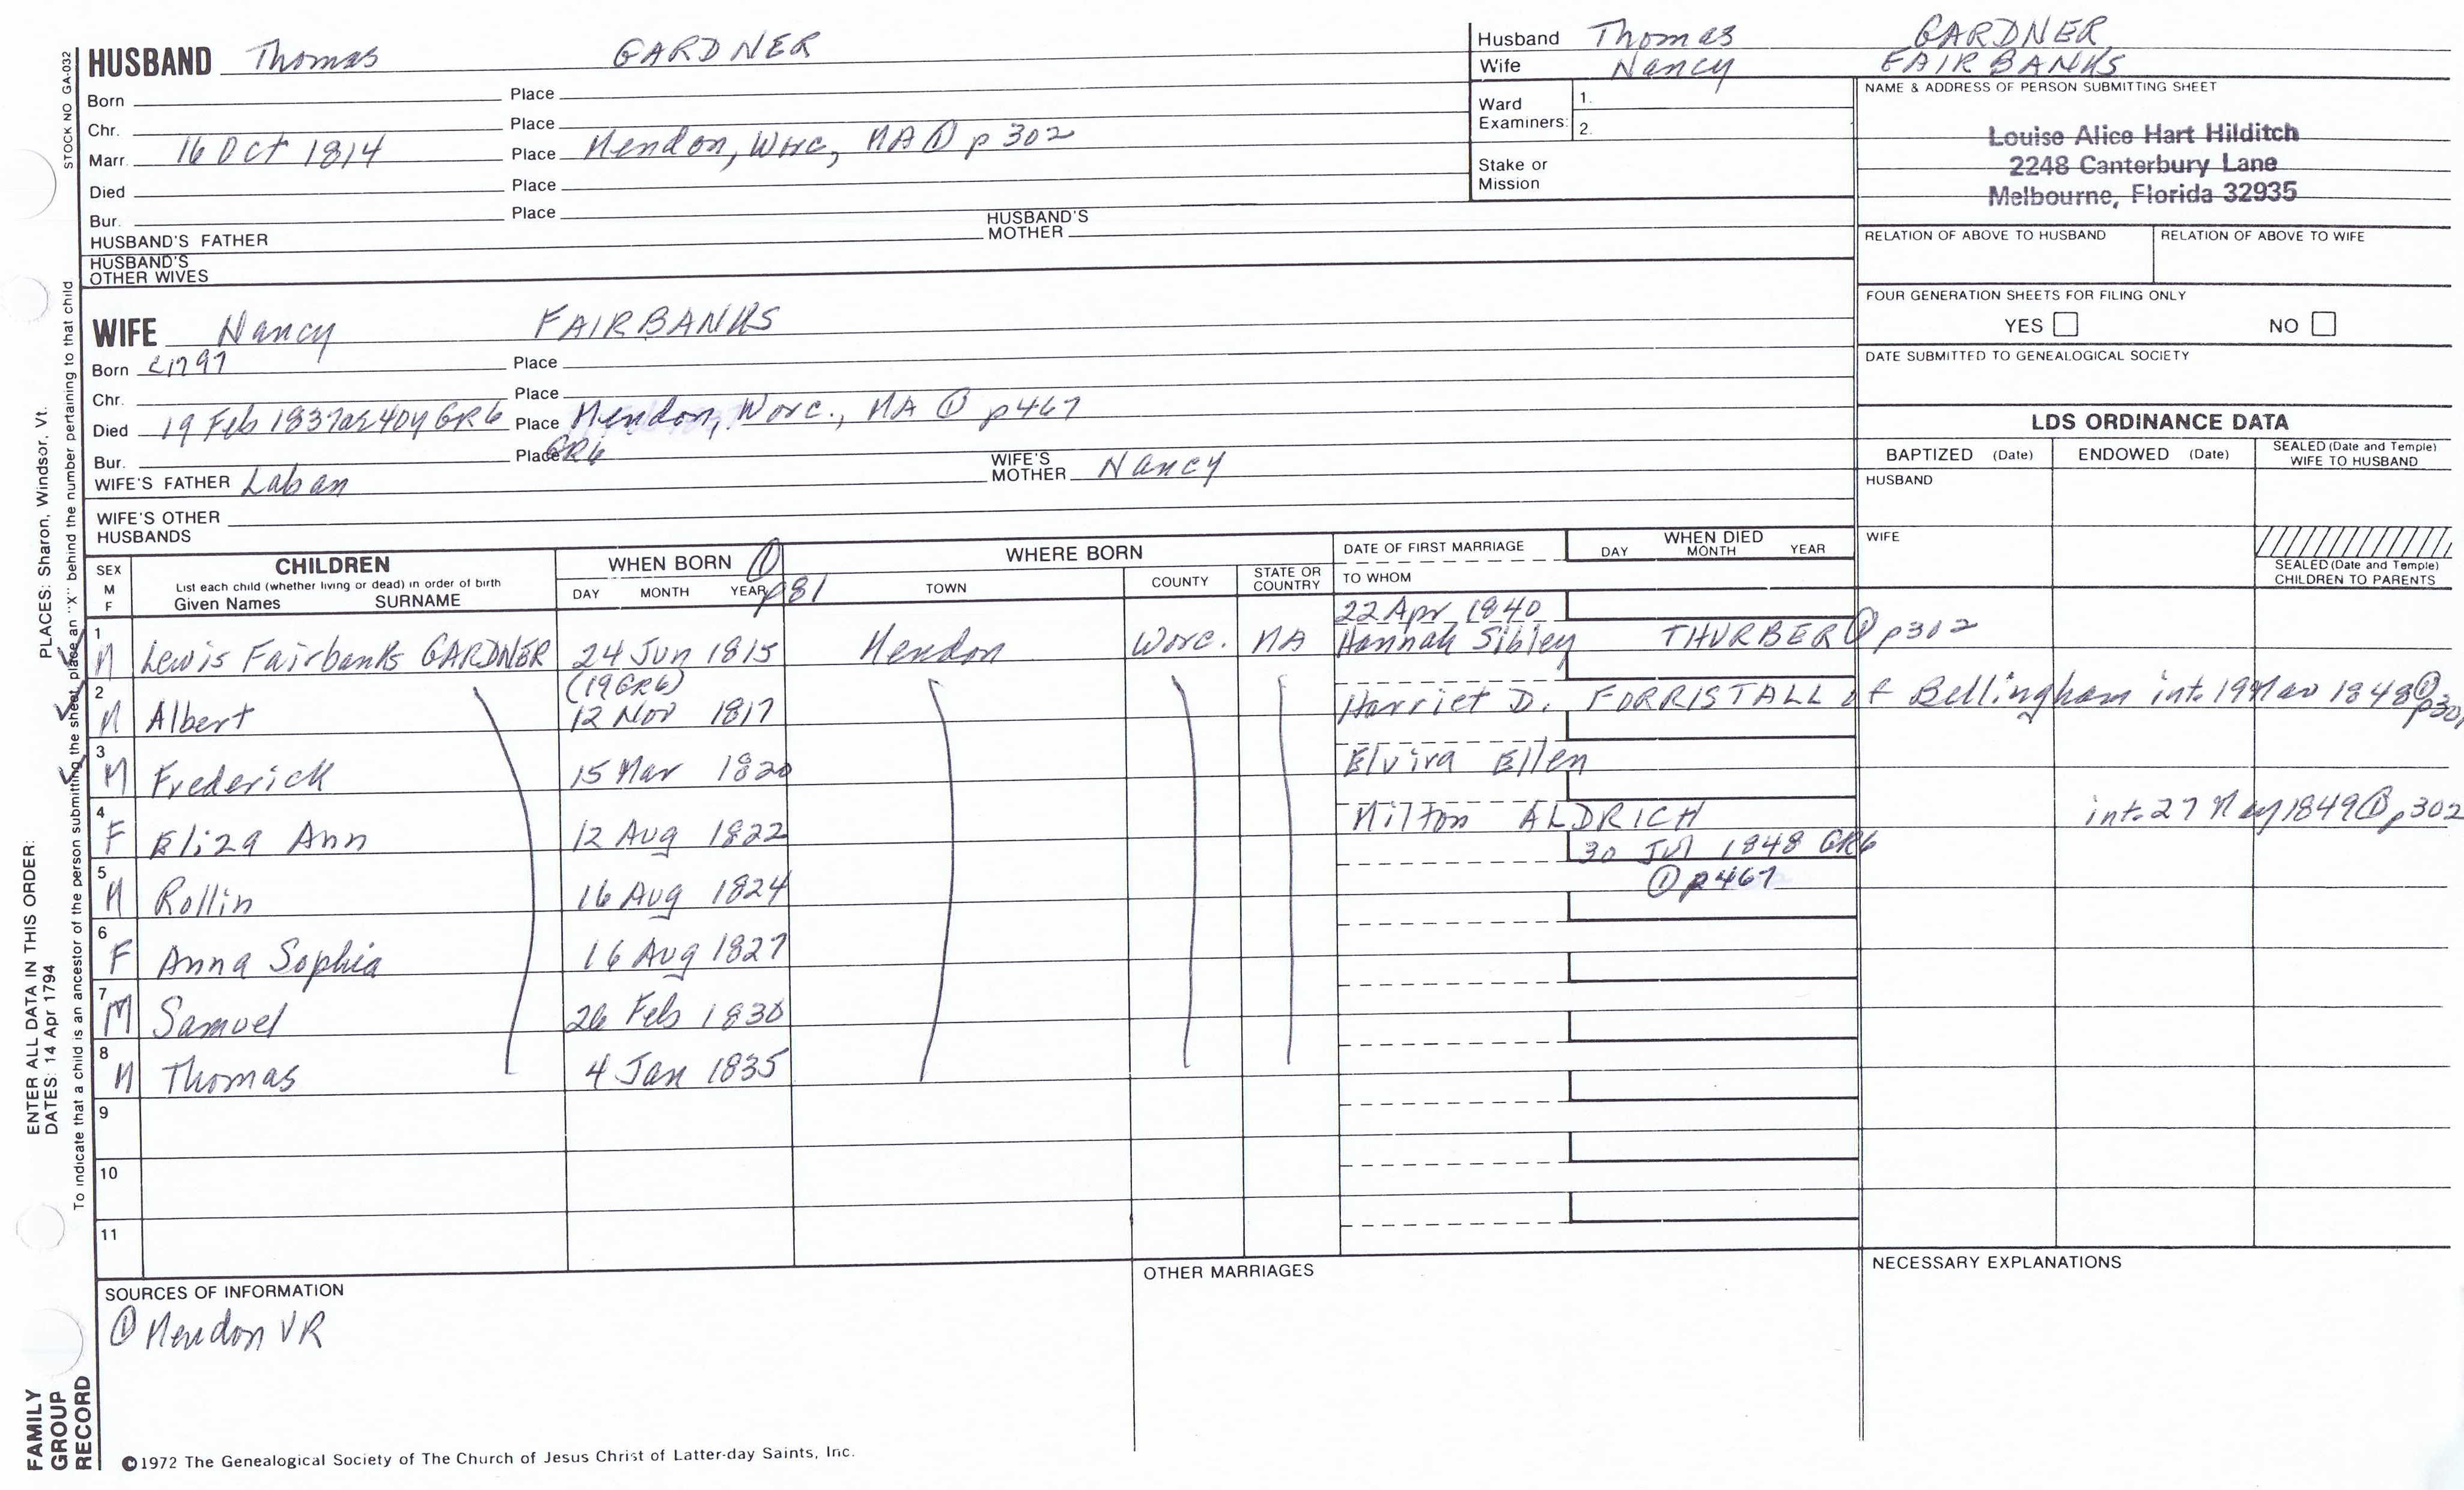 HUSBAND Thomas GARDNER
Born Place
Chr. Place
Marr. 16 Oct 1814 Place Mendon, Worc, MA ① p 302
Died Place
Bur. Place
HUSBAND'S FATHER HUSBAND'S MOTHER
HUSBAND'S OTHER WIVES
Husband Thomas GARDNER
Wife Nancy FAIRBANKS
Ward Examiners: 1.
2.
Stake or Mission
NAME & ADDRESS OF PERSON SUBMITTING SHEET
Louise Alice Hart Hilditch
2248 Canterbury Lane
Melbourne, Florida 32935
RELATION OF ABOVE TO HUSBAND RELATION OF ABOVE TO WIFE
FOUR GENERATION SHEETS FOR FILING ONLY
YES NO
DATE SUBMITTED TO GENEALOGICAL SOCIETY
WIFE Nancy FAIRBANKS
Born c1797 Place
Chr. Place
Died 19 Feb 1837 ae 40y GR6 Place Mendon, Worc., MA ① p467
Bur. Place GR6
WIFE'S FATHER Laban WIFE'S MOTHER Nancy
WIFE'S OTHER HUSBANDS
LDS ORDINANCE DATA
BAPTIZED (Date) ENDOWED (Date) SEALED (Date and Temple) WIFE TO HUSBAND
HUSBAND
WIFE
SEALED (Date and Temple) CHILDREN TO PARENTS
SEX M F
CHILDREN
List each child (whether living or dead) in order of birth
Given Names SURNAME
WHEN BORN ① p81
DAY MONTH YEAR
WHERE BORN
TOWN COUNTY STATE OR COUNTRY
DATE OF FIRST MARRIAGE
TO WHOM
WHEN DIED
DAY MONTH YEAR
22 Apr 1840
1 M Lewis Fairbanks GARDNER 24 Jun 1815 Mendon Worc. MA Hannah Sibley THURBER ① p302
(19 GR6)
2 M Albert 12 Nov 1817 Harriet D. FORRISTALL of Bellingham int. 19 Nov 1848 ① p30
3 M Frederick 15 Mar 1820 Elvira Ellen
4 F Eliza Ann 12 Aug 1822 Milton ALDRICH int. 27 May 1849 ① p302
30 Jul 1848 GR6
5 M Rollin 16 Aug 1824 ① p467
6 F Anna Sophia 16 Aug 1827
7 M Samuel 26 Feb 1830
8 M Thomas 4 Jan 1835
9
10
11
SOURCES OF INFORMATION
① Mendon VR
OTHER MARRIAGES
NECESSARY EXPLANATIONS
©1972 The Genealogical Society of The Church of Jesus Christ of Latter-day Saints, Inc.
STOCK NO GA-032
PLACES: Sharon, Windsor, Vt.
To indicate that a child is an ancestor of the person submitting the sheet, place an "X" behind the number pertaining to that child
ENTER ALL DATA IN THIS ORDER:
DATES: 14 Apr 1794
FAMILY
GROUP
RECORD